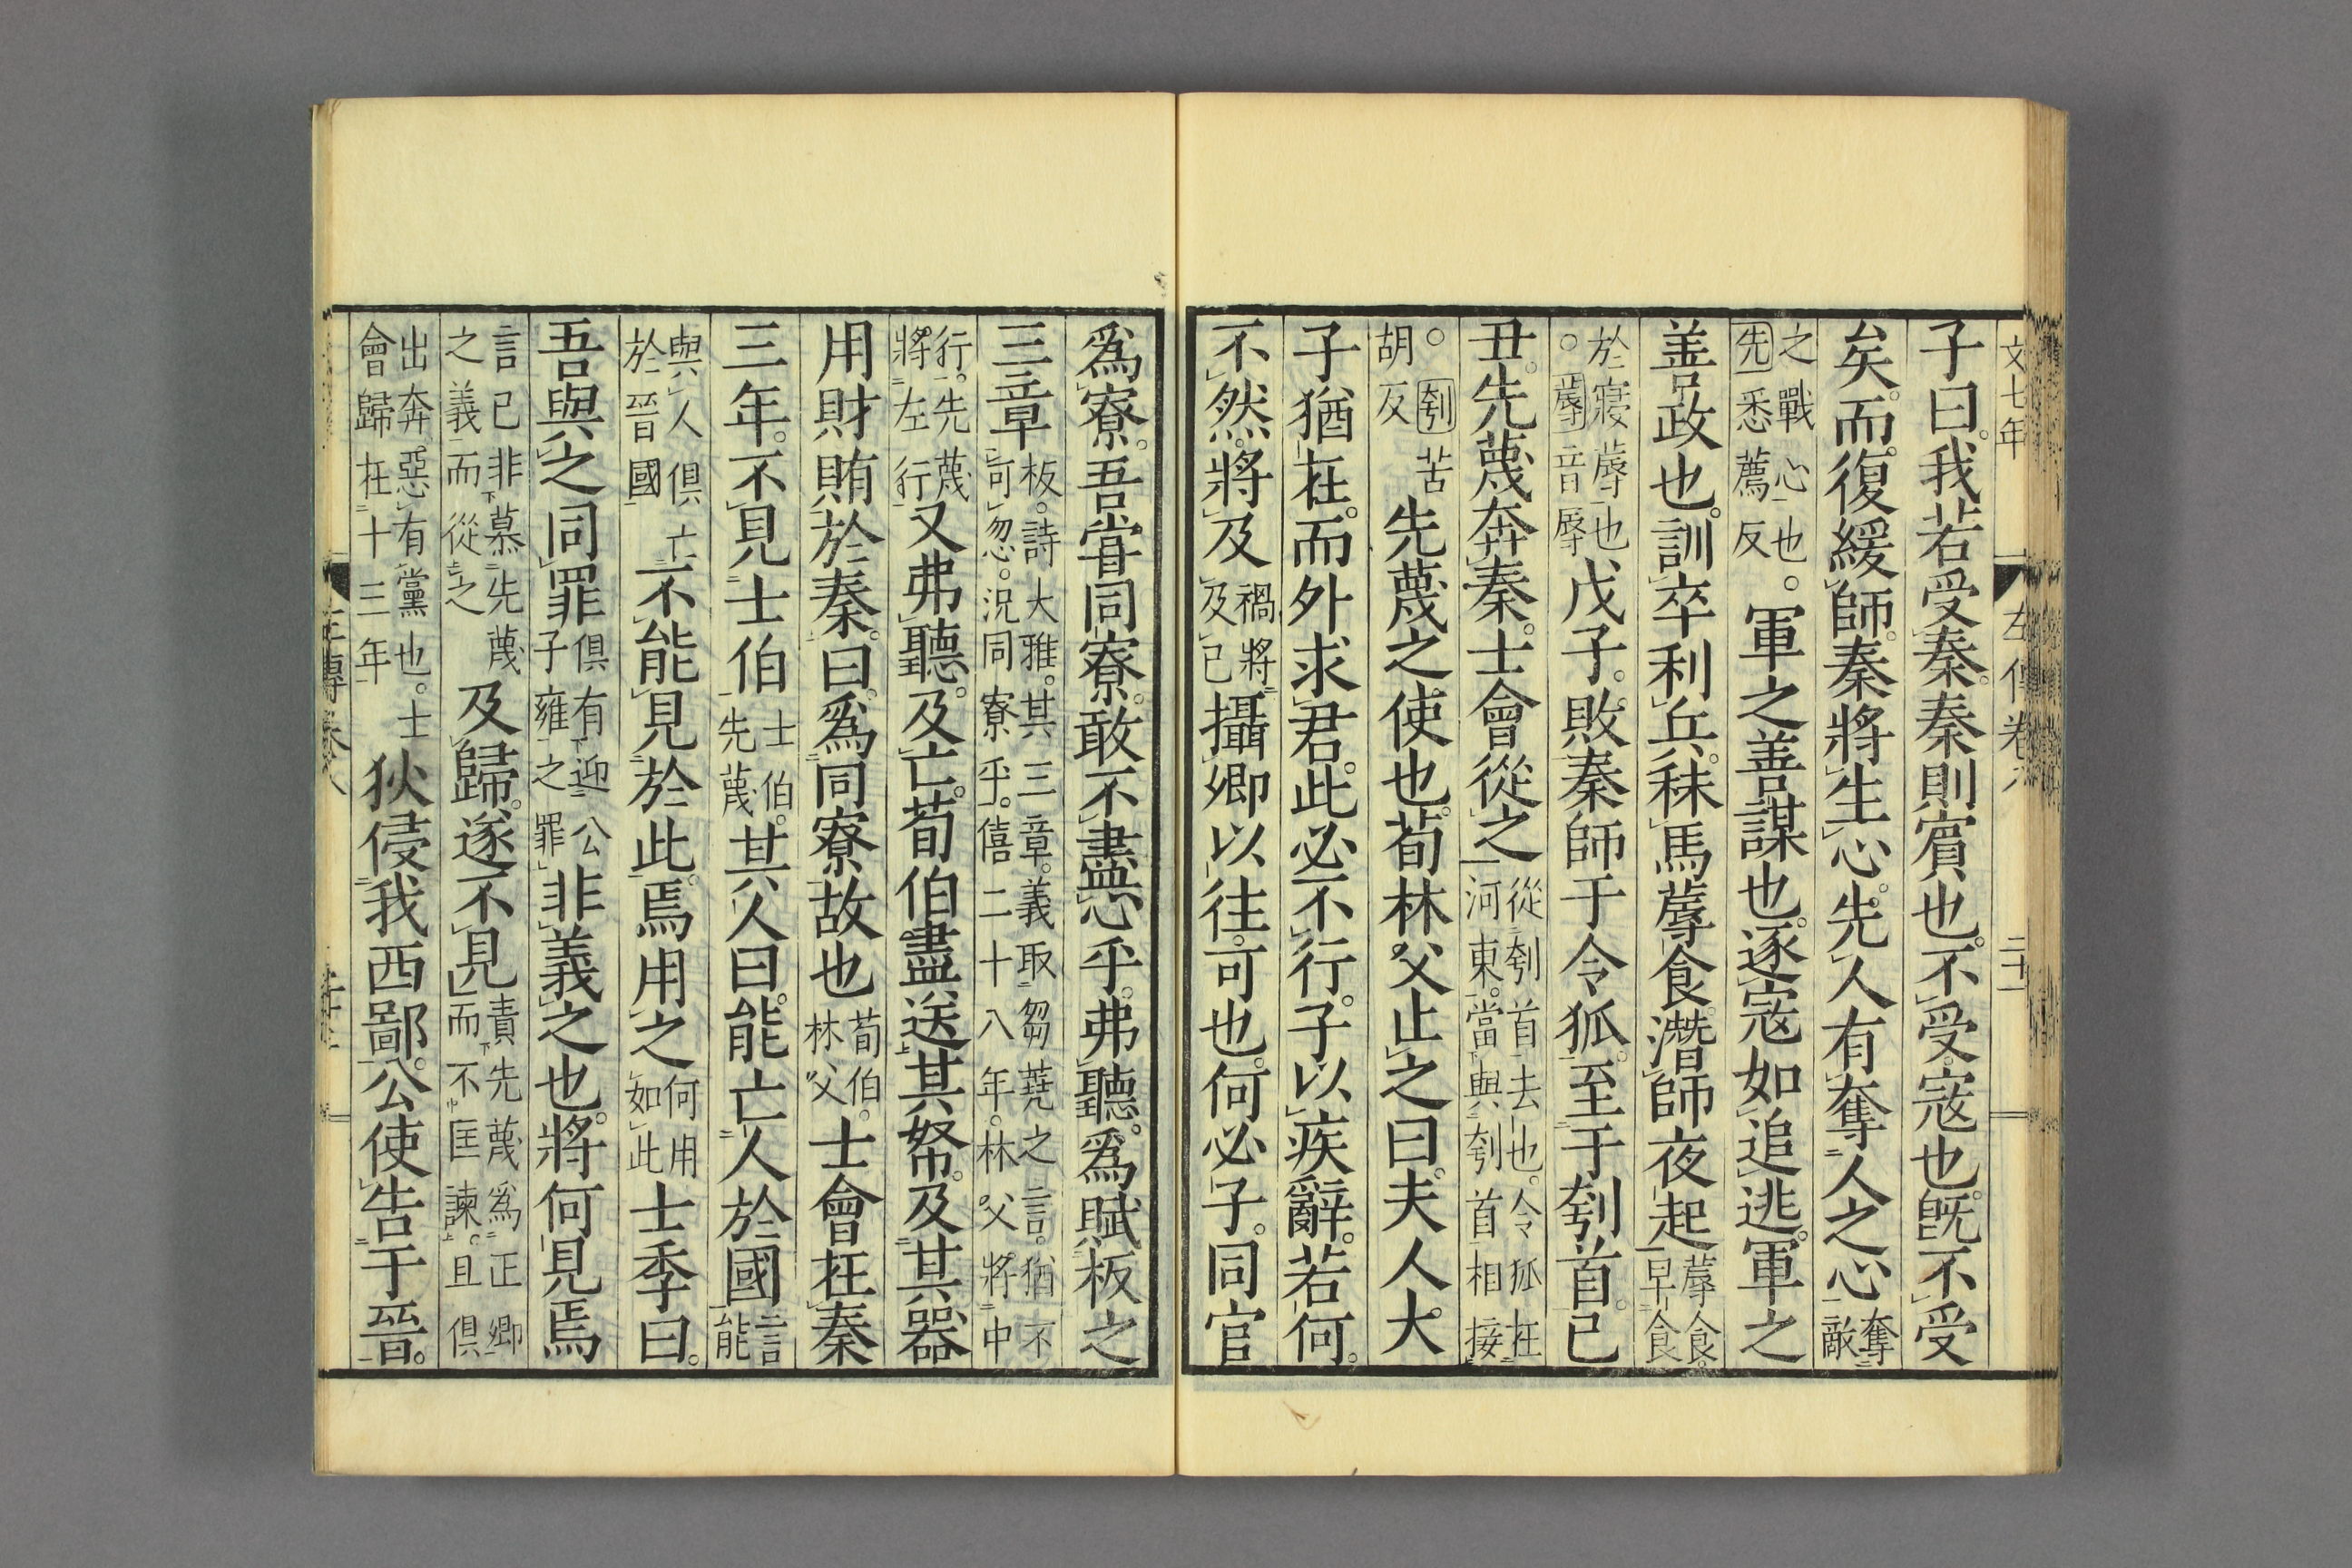 文七年 左傳卷八 二十一
子曰。我若受秦。秦則賓也。不受。寇也。旣不受
矣。而復緩師。秦將生心。先人有奪人之心奪敵
之戰心也。先悉薦反軍之善謀也。逐寇如追逃。軍之
善政也。訓卒利兵。秣馬蓐食。潛師夜起蓐食。早食
於寢蓐也。蓐音辱戊子。敗秦師于令狐。至于刳首。己
丑。先蔑奔秦。士會從之從刳首去也。令狐在河東。當與刳首相接
。刳苦胡反先蔑之使也。荀林父止之曰。夫人大
子猶在。而外求君。此必不行。子以疾辭。若何。
不然。將及禍將及已攝卿以往。可也。何必子。同官
爲寮。吾嘗同寮。敢不盡心乎。弗聽。爲賦板之
三章板。詩大雅。其三章。義取芻蕘之言。猶不可忽。況同寮乎。僖二十八年。林父將中
行。先蔑將左行又弗聽。及亡。荀伯盡送其帑。及其器
用財賄於秦。曰。爲同寮故也荀伯。林父士會在秦
三年。不見士伯士伯。先蔑其人曰。能亡人於國言能
與人俱亡於晉國不能見於此。焉用之何用如此士季曰。
吾與之同罪俱有迎公子雍之罪非義之也。將何見焉
言己非慕先蔑之義而從之及歸。遂不見責先蔑爲正卿而不匡諫。且俱
出奔。惡有黨也。士會歸在十三年狄侵我西鄙。公使告于晉。